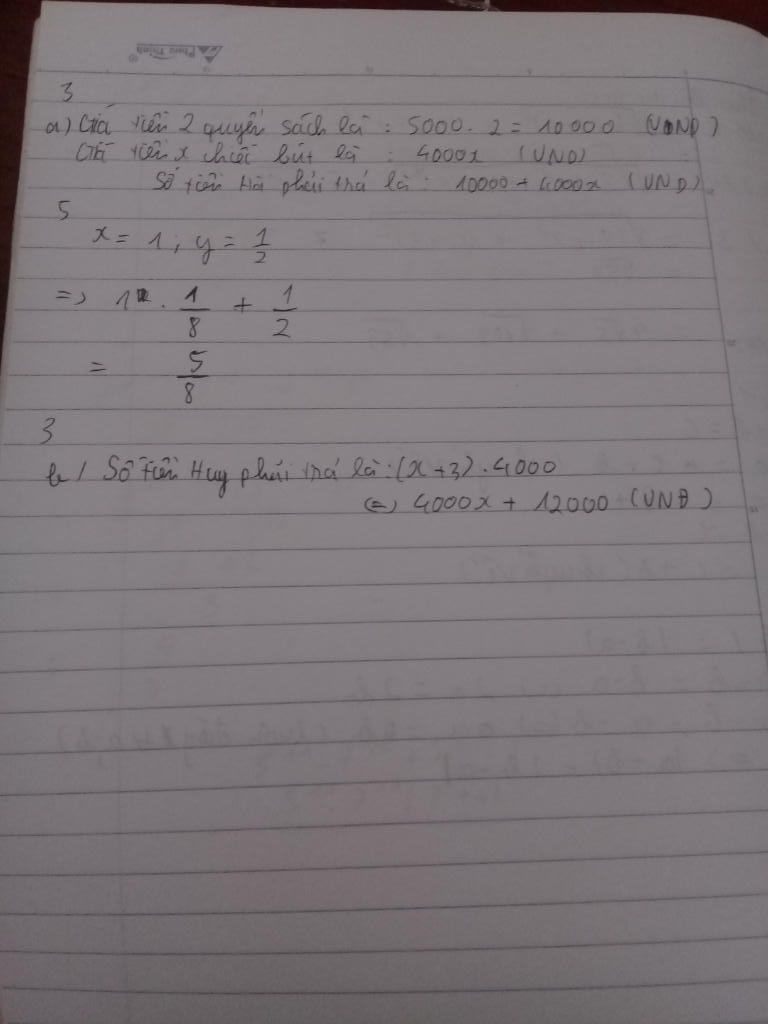 Phú Thịnh
3
a) Giá tiền 2 quyển sách là : 5000 . 2 = 10000 (VND)
Giá tiền x chiếc bút là : 4000x (VND)
Số tiền Hà phải trả là : 10000 + 4000x (VND)
5
x = 1 ; y = 1/2
=> 1 . 1/8 + 1/2
= 5/8
3
b / Số tiền Huy phải trả là : (x + 3) . 4000
(=) 4000x + 12000 (VNĐ)